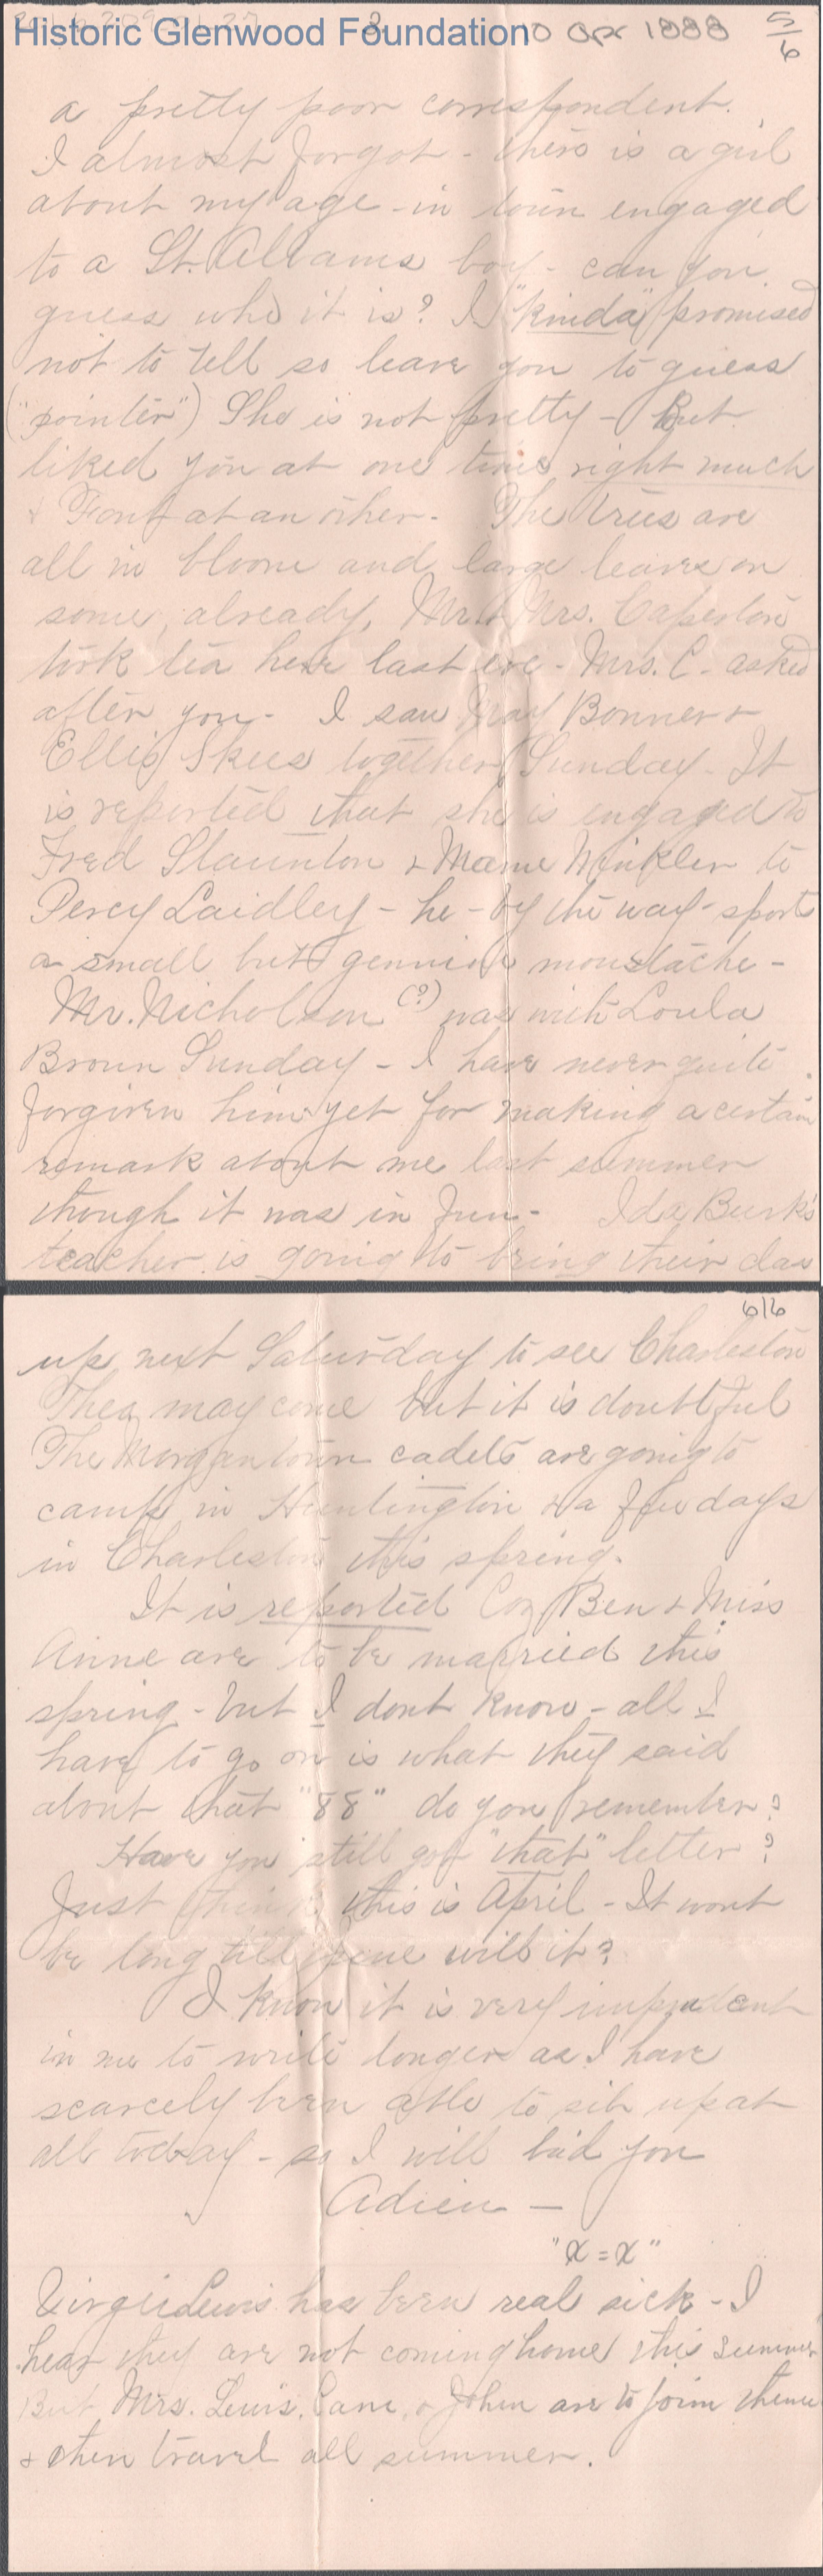 Historic Glenwood Foundation
3
10 Apr 1888
5/6
a pretty poor correspondent.
I almost forgot - there is a girl
about my age - in town engaged
to a St. Albans boy - can you
guess who it is? I "kinda" promised
not to tell so leave you to guess
("pointer") She is not pretty - But
liked you at one time right much
& Font at an other - The trees are
all in bloom and large leaves on
some, already, Mr & Mrs. Caperton
took tea here last eve - Mrs. C - asked
after you - I saw May Bonner &
Ellis Skees together Sunday - It
is reported that she is engaged to
Fred Staunton & Mame Winkler to
Percy Laidley - he - by the way - sports
a small but genuine moustache -
Mr. Nicholson (?) was with Loula
Brown Sunday - I have never quite
forgiven him yet for making a certain
remark about me last summer
though it was in fun - Ida Burk's
teacher is going to bring their class
6/6
up next Saturday to see Charleston
Thea may come but it is doubtful
The Morgantown cadets are going to
camp in Huntington & a few days
in Charleston this spring.
It is reported Coz Ben & Miss
Anne are to be married this
spring - but I dont know - all I
have to go on is what they said
about that "88" do you remember?
Have you still got "that" letter?
Just think this is April - It wont
be long till June will it?
I know it is very imprudent
in me to write longer as I have
scarcely been able to sit up at
all today - so I will bid you
Adieu -
"X = X"
Virgie Lewis has been real sick - I
hear they are not coming home this summer
But Mrs. Lewis, Cane, & John are to join them
& then travel all summer.